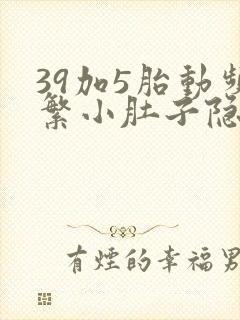 39加5胎動頻
繁小肚子隐
有煙的幸福男